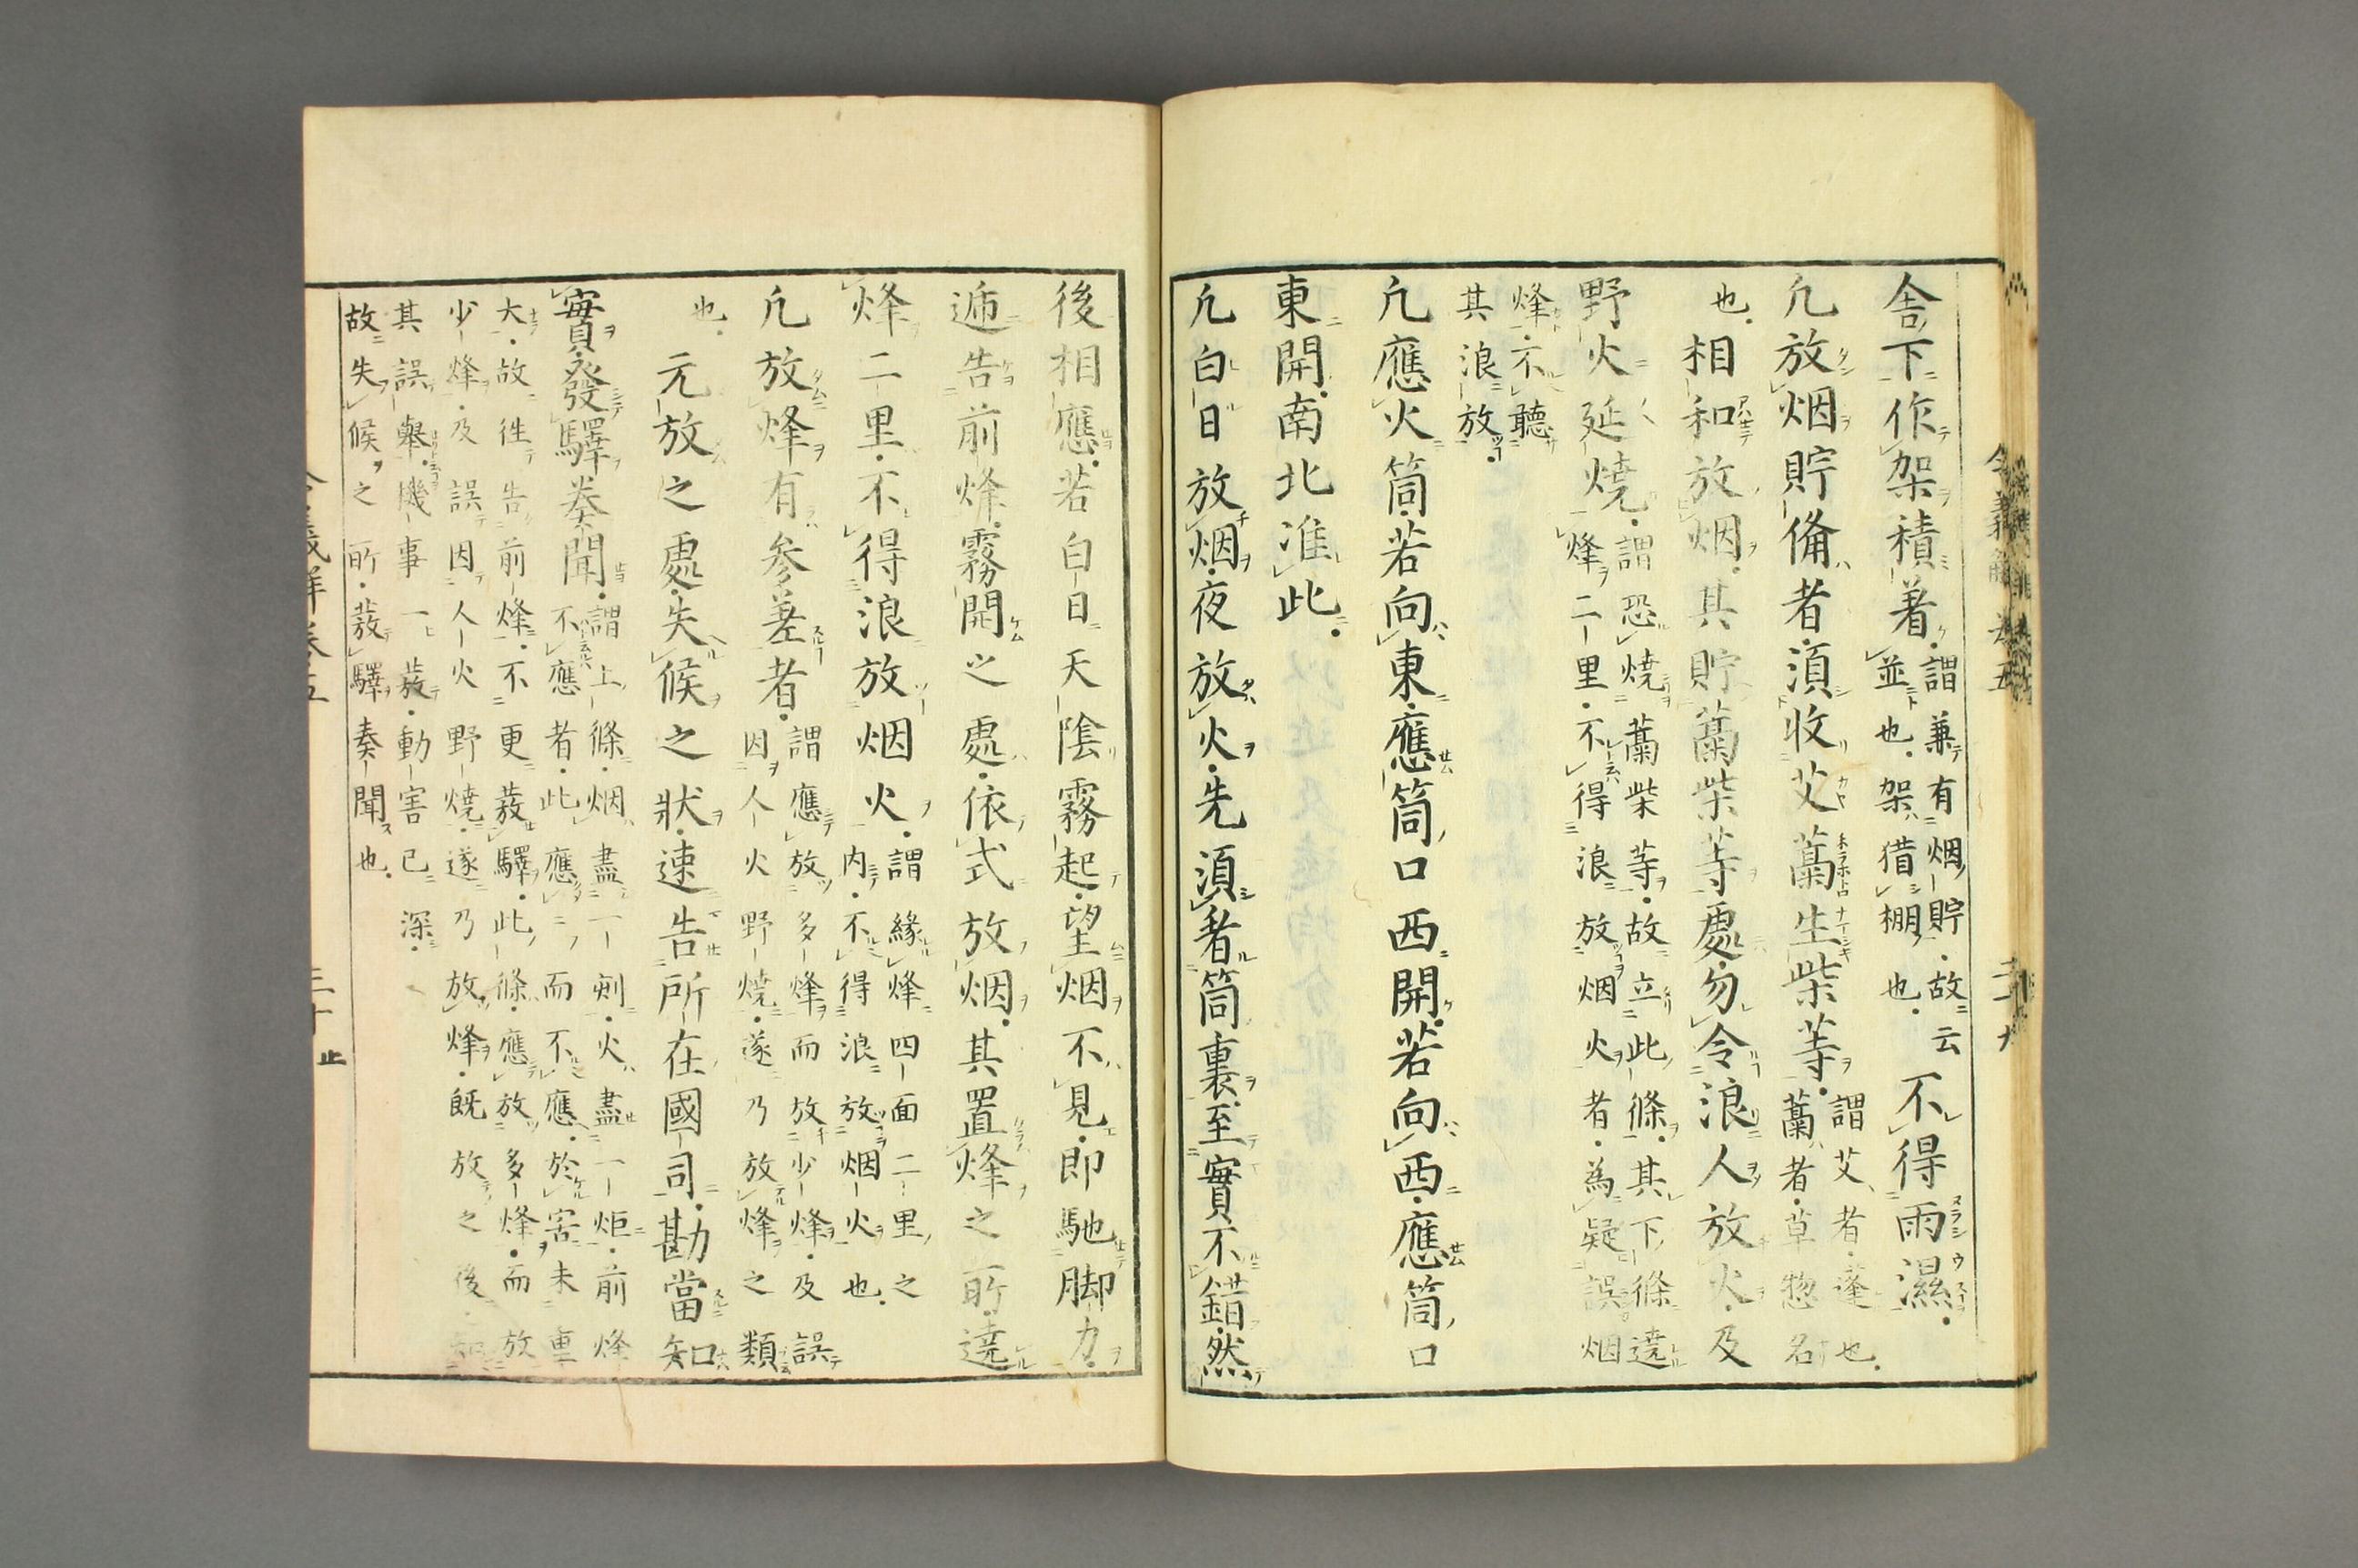 舎下作架積著。謂兼有烟貯。故云並也。架。借棚也。不得雨濕。
凢放烟貯備者。須收艾藁生柴等。謂艾者。蓬也。藁者。草惣名
也。相和放烟。其貯藁柴等處。勿令浪人放火。及
野火延燒。謂恐燒藁柴等。故立此條。其下條遶烽二里。不得浪放烟火者。為疑誤烟
烽。不聽其浪放。
凢應火筒。若向東。應筒口西開。若向西。應筒口
東開。南北淮此。
凢白日放烟。夜放火。先須看筒裏。至實不錯。然
後相應。若白日天陰霧起。望烟不見。即馳脚力。
逓告前烽。霧開之處。依式放烟。其置烽之所。遶
烽二里。不得浪放烟火。謂緣烽四面二里之内。不得浪放烟火也。
凢放烽有参差者。謂應放多烽。而放少烽。及誤因人火野燒。遂乃放烽之類
也。元放之處。失候之狀。速告所在國司。勘當知
實。發驛奏聞。謂上條。烟盡一剋。火盡一炬。前烽不應者。此應二。而不應。於害未重
大。故徃告前烽。不更發驛。此條。應放多烽。而放少烽。及誤因人火野燒。遂乃放烽。既放之後。知
其誤擧。機事一發。動害已深。故失候之所。發驛奏聞也。
三十止